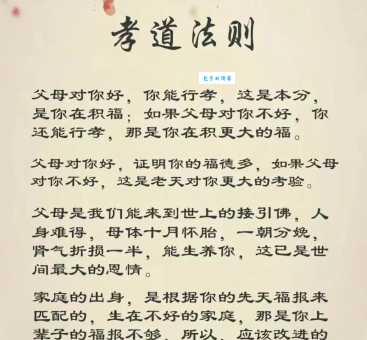 孝道法则
父母对你好，你能行孝，这是本分，
是你在积福；如果父母对你不好，你
还能行孝，那是你在积更大的福。
父母对你好，证明你的福德多，如果父母
对你不好，这是老天对你更大的考验。
父母是我们能来到世上的接引佛，人
身难得，母体十月怀胎，一朝分娩，
肾气折损一半，能生养你，这已是世
间最大的恩情。
家庭的出身，是根据你的先天福报来
匹配的，生在不好的家庭，那是你上
辈子的福报不够，所以，应该改进的